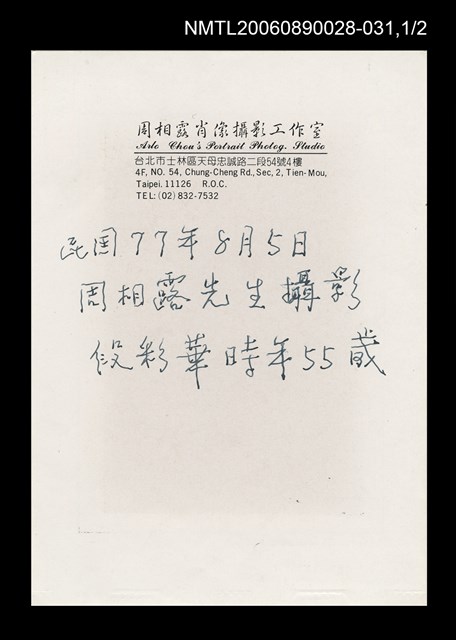 NMTL20060890028-031,1/2
周相露肖像攝影工作室
Arlo Chou's Portrait Photog. Studio
台北市士林區天母忠誠路二段54號4樓
4F, NO. 54, Chung-Cheng Rd., Sec, 2, Tien-Mou,
Taipei. 11126 R.O.C.
TEL: (02) 832-7532
民国77年8月5日
周相露先生攝影
段彩華時年55歲